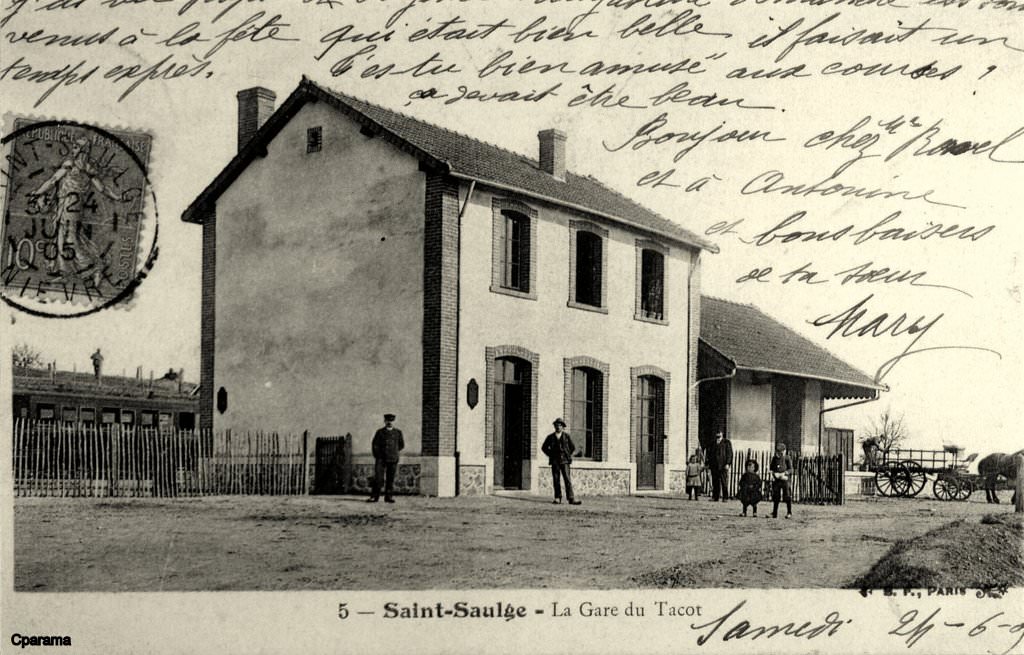 venus à la fête qui était bien belle il faisait un
temps exprès. T'es tu bien amusé aux courses ?
ça devait être beau.
Bonjour chez Mr Ravel
et à Antonine
et bons baisers
de ta sœur
Mary
RÉPUBLIQUE FRANÇAISE
POSTES
10c
SAINT-SAULGE
3E 24
JUIN
05
NIEVRE
B. F., PARIS
5 — Saint-Saulge - La Gare du Tacot
Samedi 24-6-0
Cparama